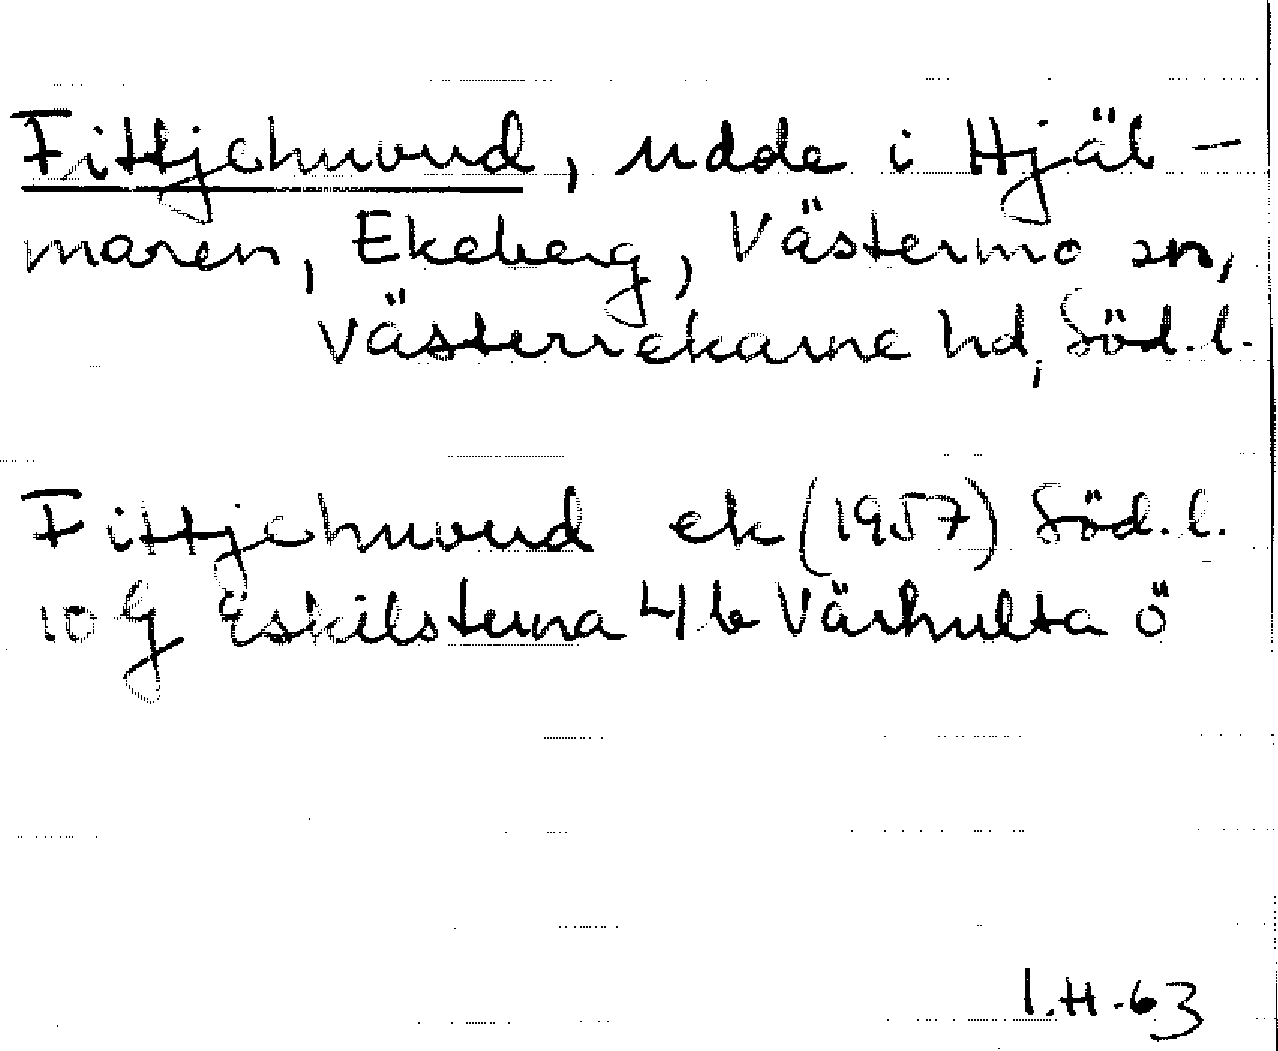 Fittjehuvud, udde i Hjäl-
maren, Ekeberg, Västermo sn,
Västerrekarne hd, Söd.l.
Fittjehuvud ek (1957) Söd.l.
10 G Eskilstuna 4 b Värhulta ö
I.H.-63